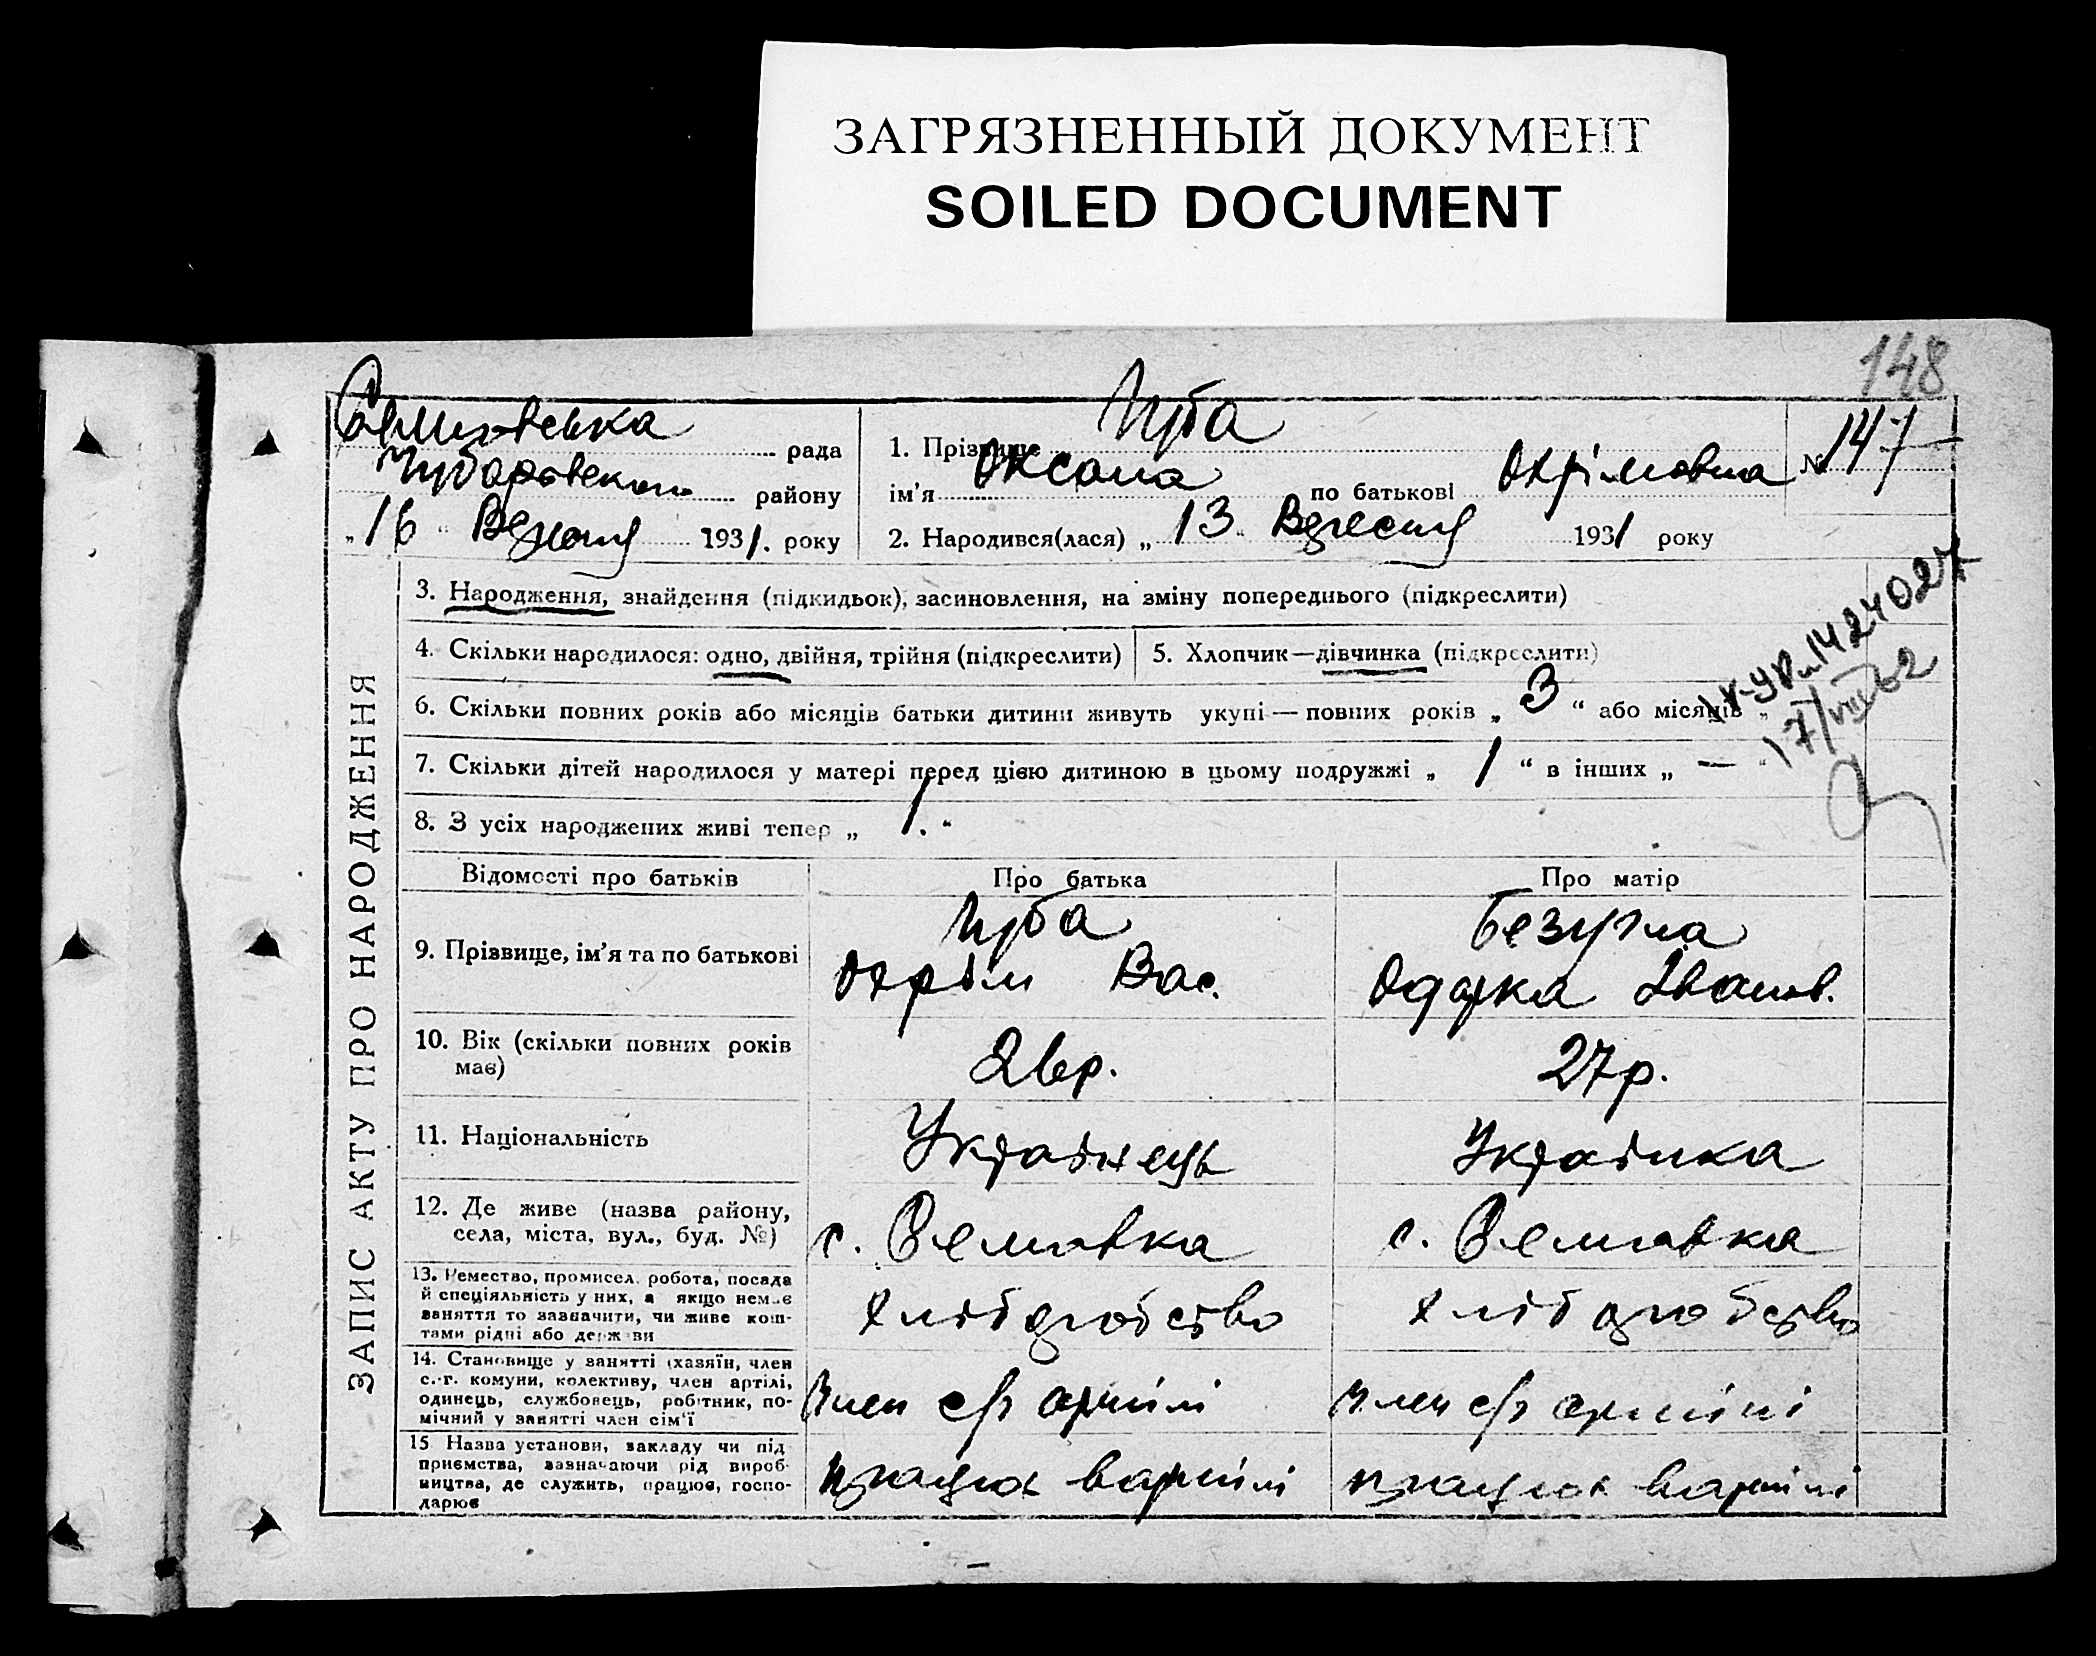 ЗАГРЯЗНЕННЫЙ ДОКУМЕНТ
SOILED DOCUMENT
148
рада
району
„16“ Вересня 1931. року
1. Прізвище
ім’я Оксана по батькові Охрімовна
№ 147
2. Народився(лася) „13“ Вересня 1931 року
ЗАПИС АКТУ ПРО НАРОДЖЕННЯ
3. Народження, знайдення (підкидьок), засиновлення, на зміну попереднього (підкреслити)
4. Скільки народилося: одно, двійня, трійня (підкреслити)
5. Хлопчик—дівчинка (підкреслити)
6. Скільки повних років або місяців батьки дитини живуть укупі — повних років „3“ або місяців „
7. Скільки дітей народилося у матері перед цією дитиною в цьому подружжі „1“ в інших „—“
8. З усіх народжених живі тепер „1.“
1424027
17/VIII 62
Відомості про батьків
Про батька
Про матір
9. Прізвище, ім’я та по батькові
Охрім Вас.
Безугла
Одарка Іванов.
10. Вік (скільки повних років
має)
26р.
27р.
11. Національність
Українець
Українка
12. Де живе (назва району,
села, міста, вул., буд. №)
с.
с.
13. Ремество, промисел, робота, посада
й спеціяльність у них, а якщо немає
заняття то зазначити, чи живе кош-
тами рідні або держави
хліборобство
хліборобство
14. Становище у занятті (хазяїн, член
с.-г. комуни, колективу, член артілі,
одинець, службовець, робітник, по-
мічний у занятті член сім’ї
Член с/г артілі
член с/г артілі
15 Назва установи, закладу чи під
приємства, зазначаючи рід вироб-
ництва, де служить, працює, госпо-
дарює
працює в артілі
працює в артілі